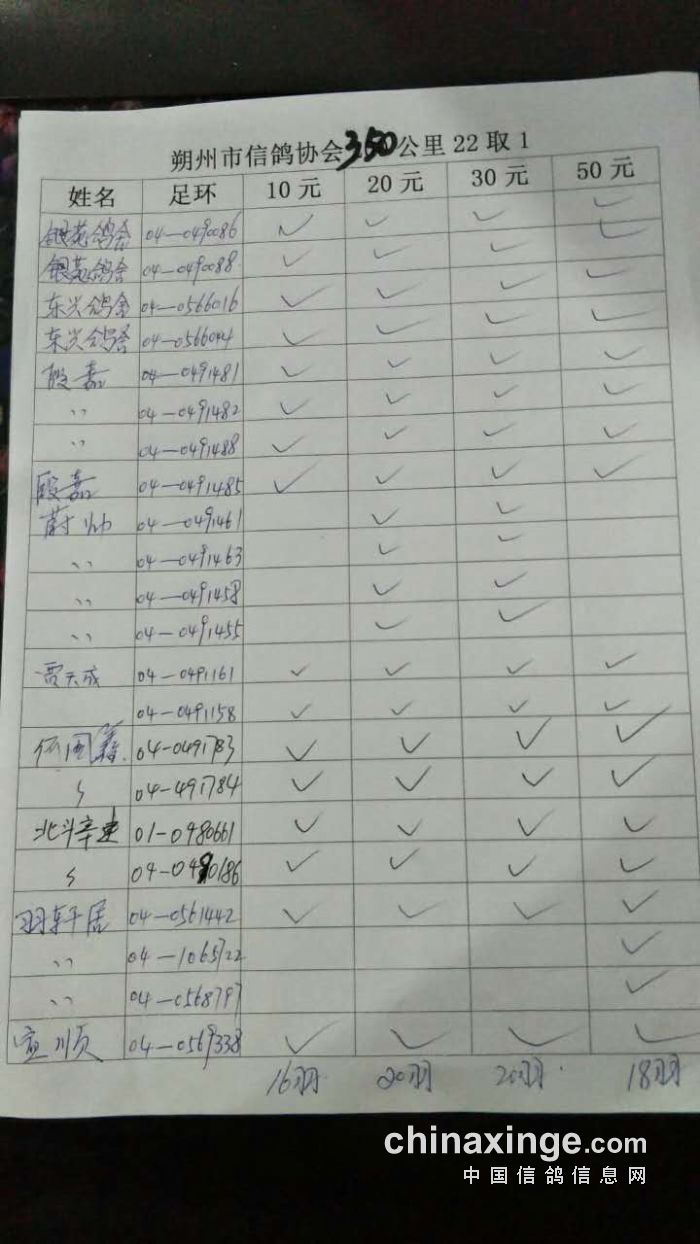 朔州市信鸽协会350公里22取1
姓名 足环 10元 20元 30元 50元
银苑鸽舍 04-0490086 ✓ ✓ ✓ ✓
银苑鸽舍 04-0490088 ✓ ✓ ✓ ✓
东兴鸽舍 04-0566016 ✓ ✓ ✓ ✓
东兴鸽舍 04-0566044 ✓ ✓ ✓ ✓
殷嘉 04-0491481 ✓ ✓ ✓ ✓
〃 04-0491482 ✓ ✓ ✓ ✓
〃 04-0491488 ✓ ✓ ✓ ✓
殷嘉 04-0491485 ✓ ✓ ✓ ✓
蔚帅 04-0491461 ✓ ✓
〃 04-0491463 ✓ ✓
〃 04-0491458 ✓ ✓
〃 04-0491455 ✓ ✓
贾天成 04-0491161 ✓ ✓ ✓ ✓
04-0491158 ✓ ✓ ✓ ✓
04-0491783 ✓ ✓ ✓ ✓
〃 04-491784 ✓ ✓ ✓ ✓
北斗辛建 01-0980661 ✓ ✓ ✓ ✓
〃 04-0490186 ✓ ✓ ✓ ✓
羽轩居 04-0561442 ✓ ✓ ✓ ✓
〃 04-1065722 ✓
〃 04-0568797 ✓
04-0569338 ✓ ✓ ✓ ✓
16羽 20羽 20羽 18羽
chinaxinge.com
中国信鸽信息网